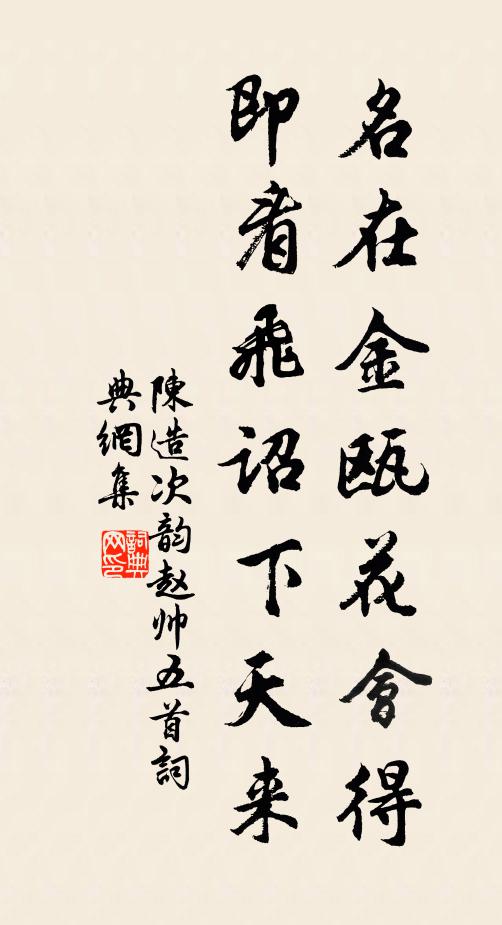 名在金瓯花會得
即看飛诏下天来
陳造次韵赵帅五首詞
典網集
詞典网印